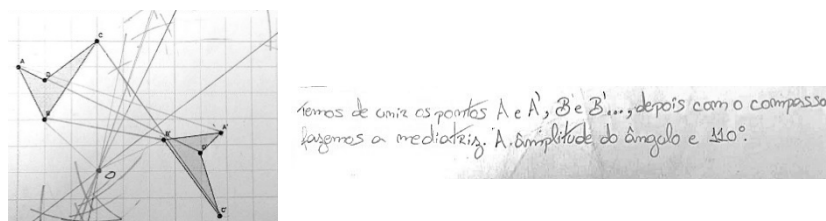 A
D
C
B
B'
A'
D'
C'
O
Temos de unir os pontos A e A', B e B'..., depois com o compasso
fazemos a mediatriz. A amplitude do ângulo e 110°.